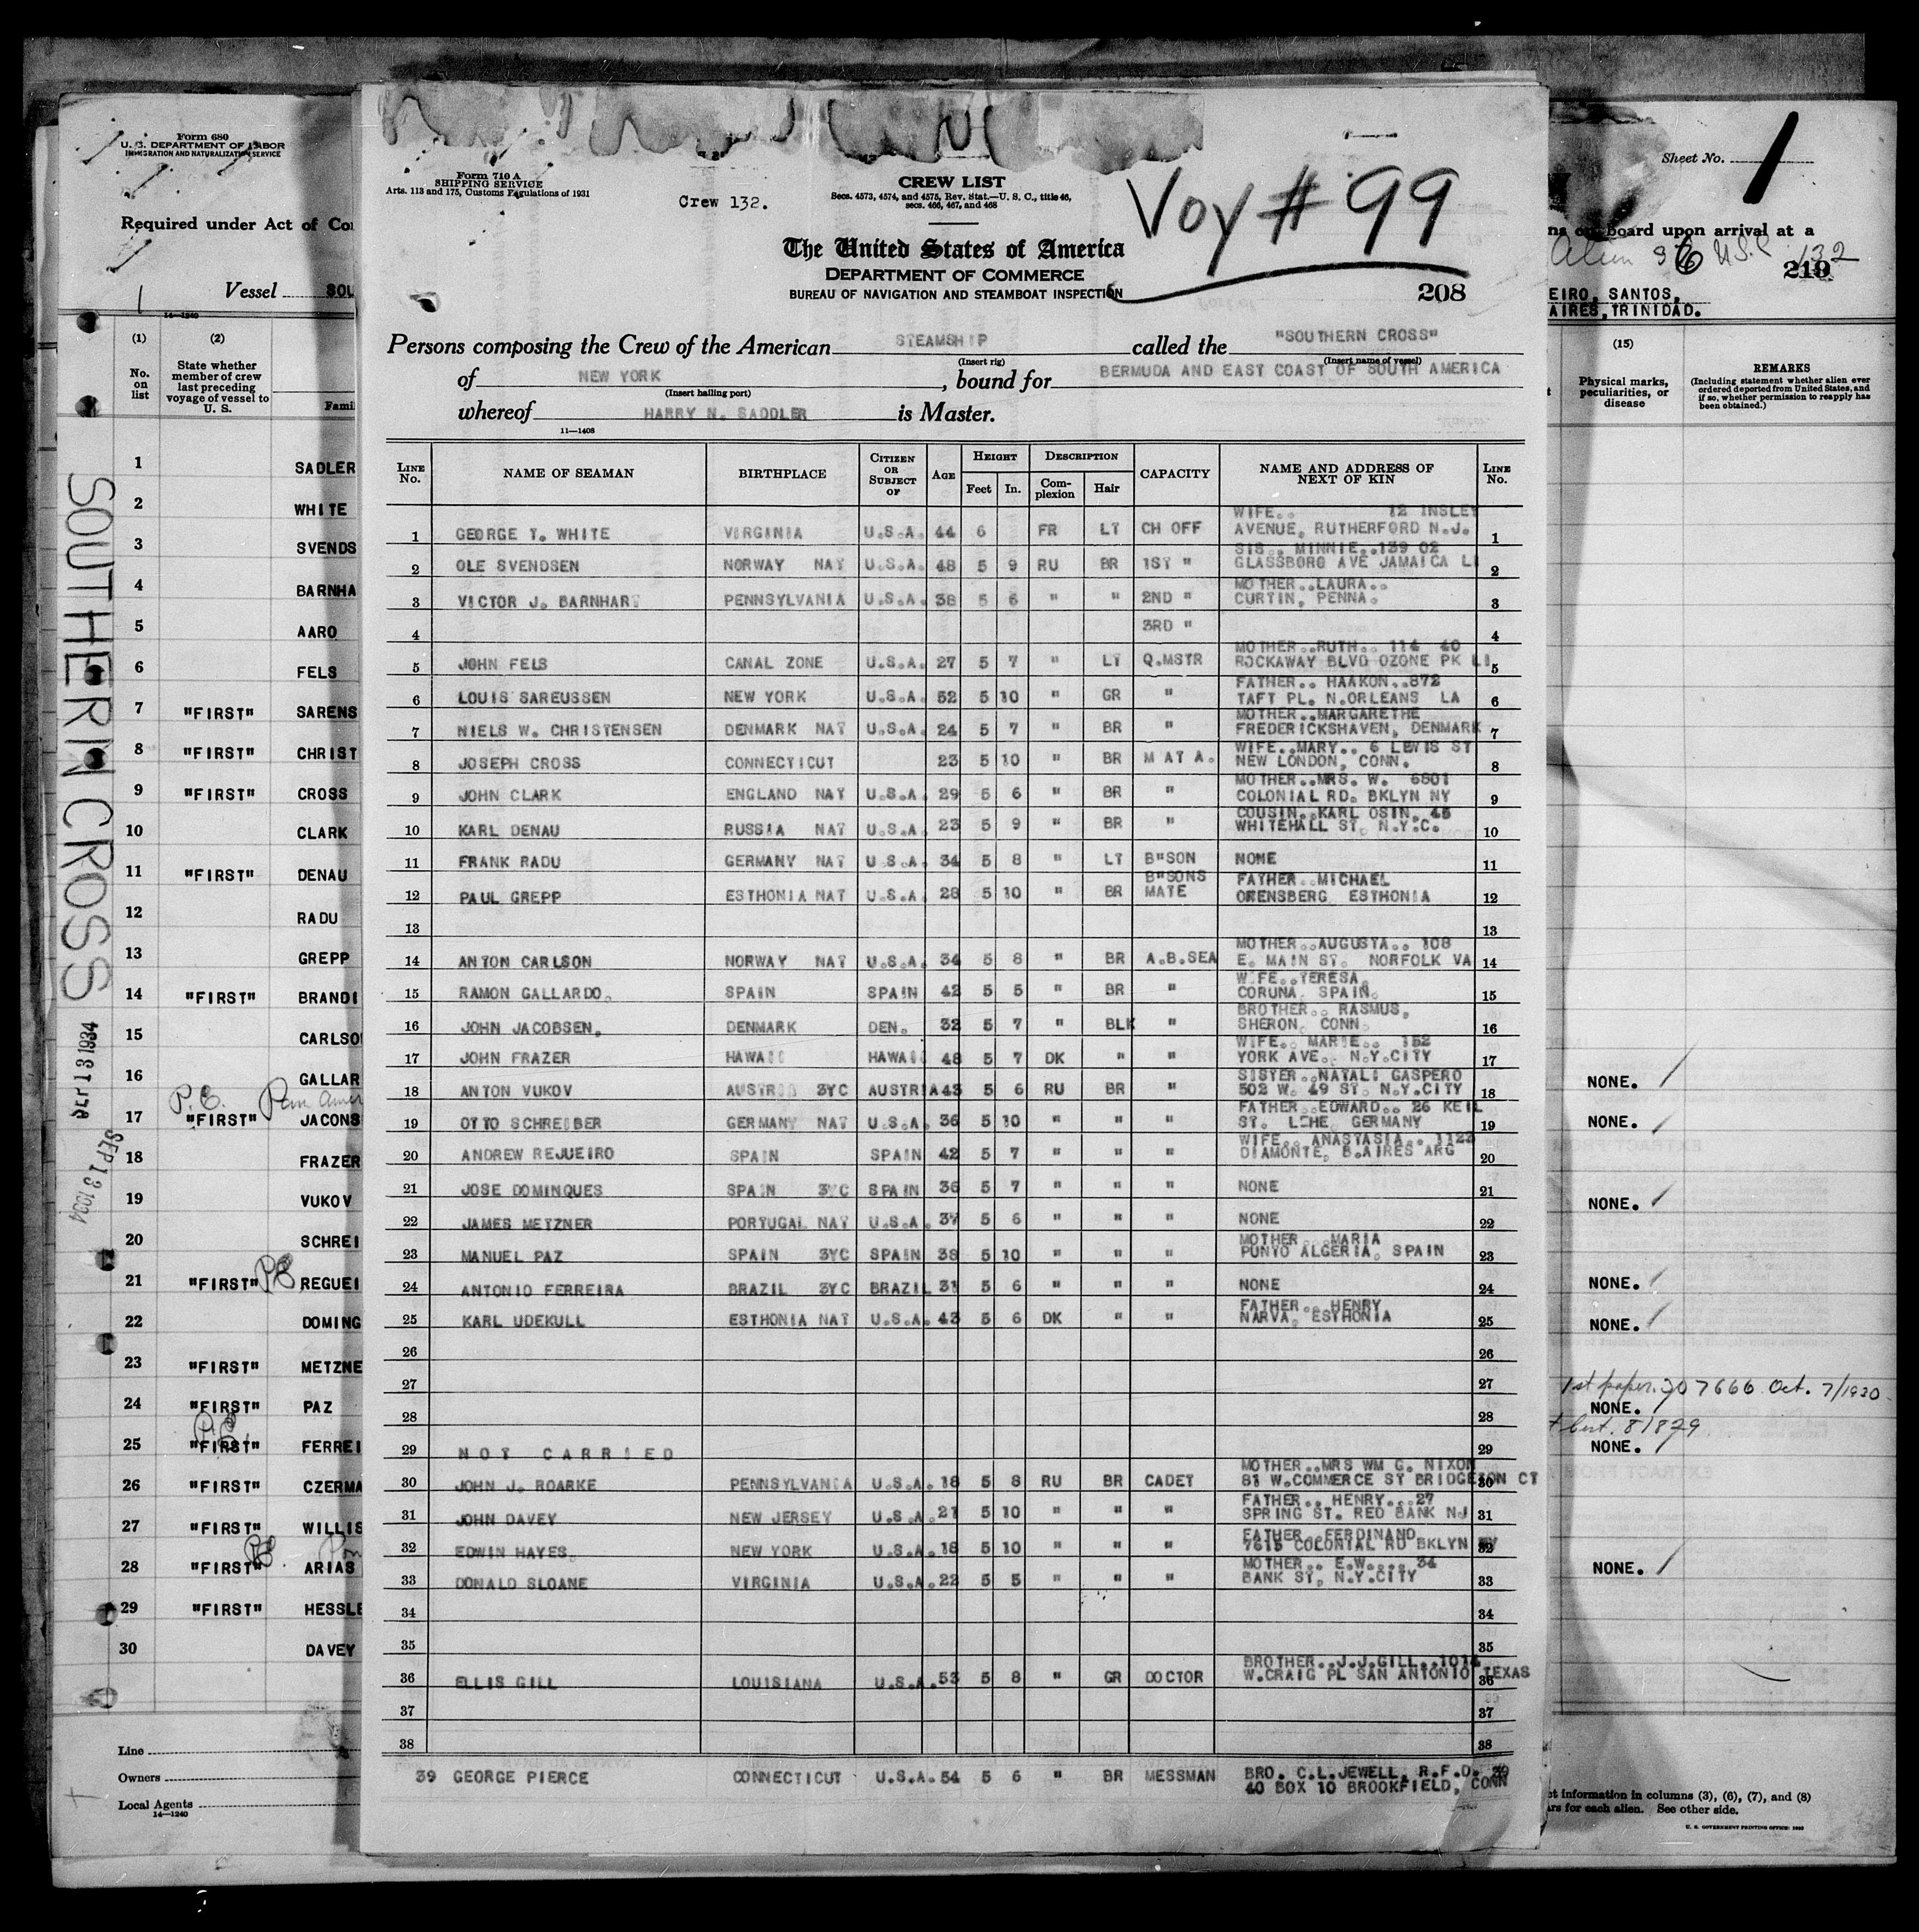 Form 680
U. S. DEPARTMENT OF LABOR
IMMIGRATION AND NATURALIZATION SERVICE
Required under Act of Co
Vessel SOU
14—1240
(1) (2)
No. on list
State whether member of crew last preceding voyage of vessel to U. S.
Fami
1 SADLER
2 WHITE
3 SVENDS
4 BARNHA
5 AARO
6 FELS
7 "FIRST" SARENS
8 "FIRST" CHRIST
9 "FIRST" CROSS
10 CLARK
11 "FIRST" DENAU
12 RADU
13 GREPP
14 "FIRST" BRANDI
15 CARLSO
16 GALLAR
P.E.
17 "FIRST" JACONS
18 FRAZER
19 VUKOV
20 SCHREI
21 "FIRST" PE REGUEI
22 DOMING
23 "FIRST" METZNE
24 "FIRST" PAZ
P.E.
25 "FIRST" FERREI
26 "FIRST" CZERMA
27 "FIRST" WILLIS
PE.
28 "FIRST" ARIAS
29 "FIRST" HESSLE
30 DAVEY
Line
Owners
Local Agents
14—1240
SOUTHERN CROSS
SEP 13 1934
SEP 13 1934
Form 710 A
SHIPPING SERVICE
Arts. 113 and 175, Customs Regulations of 1931
Crew 132.
CREW LIST
Secs. 4573, 4574, and 4575, Rev. Stat.—U. S. C., title 46,
secs. 466, 467, and 468
Voy # 99
The United States of America
DEPARTMENT OF COMMERCE
BUREAU OF NAVIGATION AND STEAMBOAT INSPECTION
208
Persons composing the Crew of the American STEAMSHIP called the "SOUTHERN CROSS"
(Insert rig) (Insert name of vessel)
of NEW YORK, bound for BERMUDA AND EAST COAST OF SOUTH AMERICA
(Insert hailing port)
whereof HARRY N. SADDLER is Master.
11—1408
LINE No. NAME OF SEAMAN BIRTHPLACE CITIZEN OR SUBJECT OF AGE HEIGHT Feet In. DESCRIPTION Complexion Hair CAPACITY NAME AND ADDRESS OF NEXT OF KIN LINE No.
WIFE.. 12 INSLEY
1 GEORGE T. WHITE VIRGINIA U.S.A. 44 6 FR LT CH OFF AVENUE, RUTHERFORD N.J. 1
SIS.. MINNIE..139 02
2 OLE SVENDSEN NORWAY NAT U.S.A. 48 5 9 RU BR 1ST " GLASSBORO AVE JAMAICA LI 2
MOTHER..LAURA..
3 VICTOR J. BARNHART PENNSYLVANIA U.S.A. 38 5 6 " " 2ND " CURTIN, PENNA. 3
4 3RD " 4
MOTHER..RUTH.. 114 40
5 JOHN FELS CANAL ZONE U.S.A. 27 5 7 " LT Q.MSTR ROCKAWAY BLVD OZONE PK LI 5
FATHER.. HAAKON..872
6 LOUIS SAREUSSEN NEW YORK U.S.A. 52 5 10 " GR " TAFT PL. N.ORLEANS LA 6
MOTHER..MARGARETHE
7 NIELS W. CHRISTENSEN DENMARK NAT U.S.A. 24 5 7 " BR " FREDERICKSHAVEN, DENMARK 7
WIFE..MARY.. 6 LEWIS ST
8 JOSEPH CROSS CONNECTICUT 23 5 10 " BR M AT A. NEW LONDON, CONN. 8
MOTHER..MRS. W. 6801
9 JOHN CLARK ENGLAND NAT U.S.A. 29 5 6 " BR " COLONIAL RD. BKLYN NY 9
COUSIN..KARL OSIN, 45
10 KARL DENAU RUSSIA NAT U.S.A. 23 5 9 " BR " WHITEHALL ST, N.Y.C. 10
11 FRANK RADU GERMANY NAT U.S.A. 34 5 8 " LT B"SON NONE 11
B"SONS FATHER..MICHAEL
12 PAUL GREPP ESTHONIA NAT U.S.A. 28 5 10 " BR MATE ORENSBERG, ESTHONIA 12
13 13
MOTHER..AUGUSTA.. 108
14 ANTON CARLSON NORWAY NAT U.S.A. 34 5 8 " BR A.B.SEA E. MAIN ST. NORFOLK VA 14
WIFE..TERESA,
15 RAMON GALLARDO. SPAIN SPAIN 42 5 5 " BR " CORUNA, SPAIN. 15
BROTHER.. RASMUS,
16 JOHN JACOBSEN. DENMARK DEN. 32 5 7 " BLK " SHERON, CONN. 16
WIFE.. MARIE.. 152
17 JOHN FRAZER HAWAII HAWAII 48 5 7 DK " " YORK AVE.. N.Y.CITY 17
SISTER..NATALI GASPERO
18 ANTON VUKOV AUSTRIA 3YC AUSTRIA 43 5 6 RU BR " 502 W. 49 ST. N.Y.CITY 18
FATHER..EDWARD.. 26 KEIL
19 OTTO SCHREIBER GERMANY NAT U.S.A. 36 5 10 " " " ST. LEHE, GERMANY 19
WIFE.. ANASTASIA.. 1123
20 ANDREW REJUEIRO SPAIN SPAIN 42 5 7 " " " DIAMONTE, B.AIRES ARG 20
21 JOSE DOMINQUES SPAIN 3YC SPAIN 36 5 7 " " " NONE 21
22 JAMES METZNER PORTUGAL NAT U.S.A. 37 5 6 " " " NONE 22
MOTHER.. MARIA
23 MANUEL PAZ SPAIN 3YC SPAIN 38 5 10 " " " PUNYO ALGERIA, SPAIN 23
24 ANTONIO FERREIRA BRAZIL 3YC BRAZIL 31 5 6 " " " NONE 24
FATHER.. HENRY
25 KARL UDEKULL ESTHONIA NAT U.S.A. 43 5 6 DK " " NARVA, ESTHONIA 25
26 26
27 27
28 28
29 NOT CARRIED 29
MOTHER..MRS WM G. NIXON
30 JOHN J. ROARKE PENNSYLVANIA U.S.A. 18 5 8 RU BR CADET 81 W.COMMERCE ST BRIDGETON CT 30
FATHER.. HENRY...27
31 JOHN DAVEY NEW JERSEY U.S.A. 21 5 10 " " " SPRING ST. RED BANK NJ 31
FATHER..FERDINAND
32 EDWIN HAYES. NEW YORK U.S.A. 18 5 10 " " " 7615 COLONIAL RD BKLYN NY 32
MOTHER.. E.W.... 34
33 DONALD SLOANE VIRGINIA U.S.A. 22 5 5 " " " BANK ST, N.Y.CITY 33
34 34
35 35
BROTHER..J.J.GILL..1014
36 ELLIS GILL LOUISIANA U.S.A. 53 5 8 " GR DOCTOR W.CRAIG PL SAN ANTONIO TEXAS 36
37 37
38 38
39 GEORGE PIERCE CONNECTICUT U.S.A. 54 5 6 " BR MESSMAN BRO. C.L.JEWELL, R.F.D. 39
40 BOX 10 BROOKFIELD, CONN
Sheet No. 1
ns on board upon arrival at a
Alien 36 U.S.C 132
210
EIRO, SANTOS,
AIRES, TRINIDAD.
(15)
Physical marks, peculiarities, or disease
REMARKS
(Including statement whether alien ever ordered deported from United States, and if so, whether permission to reapply has been obtained.)
NONE. /
NONE. /
NONE. /
NONE. /
NONE. /
1st paper. 307666 Oct. 7/1930
NONE. /
t cert. 81879
NONE. /
NONE. /
ct information in columns (3), (6), (7), and (8)
rs for each alien. See other side.
U. S. GOVERNMENT PRINTING OFFICE: 1933